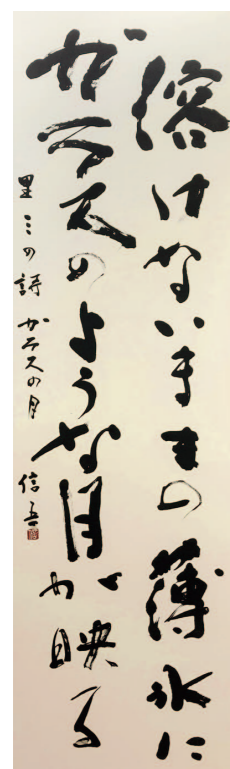 溶けないままの薄氷に
ガラスのような月が映る
里ミの詩 ガラスの月 信吾